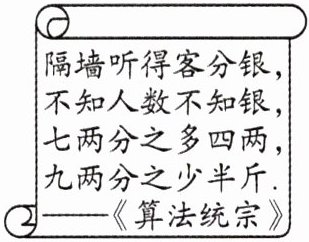 隔墙听得客分银，
不知人数不知银，
七两分之多四两，
九两分之少半斤.
——《算法统宗》